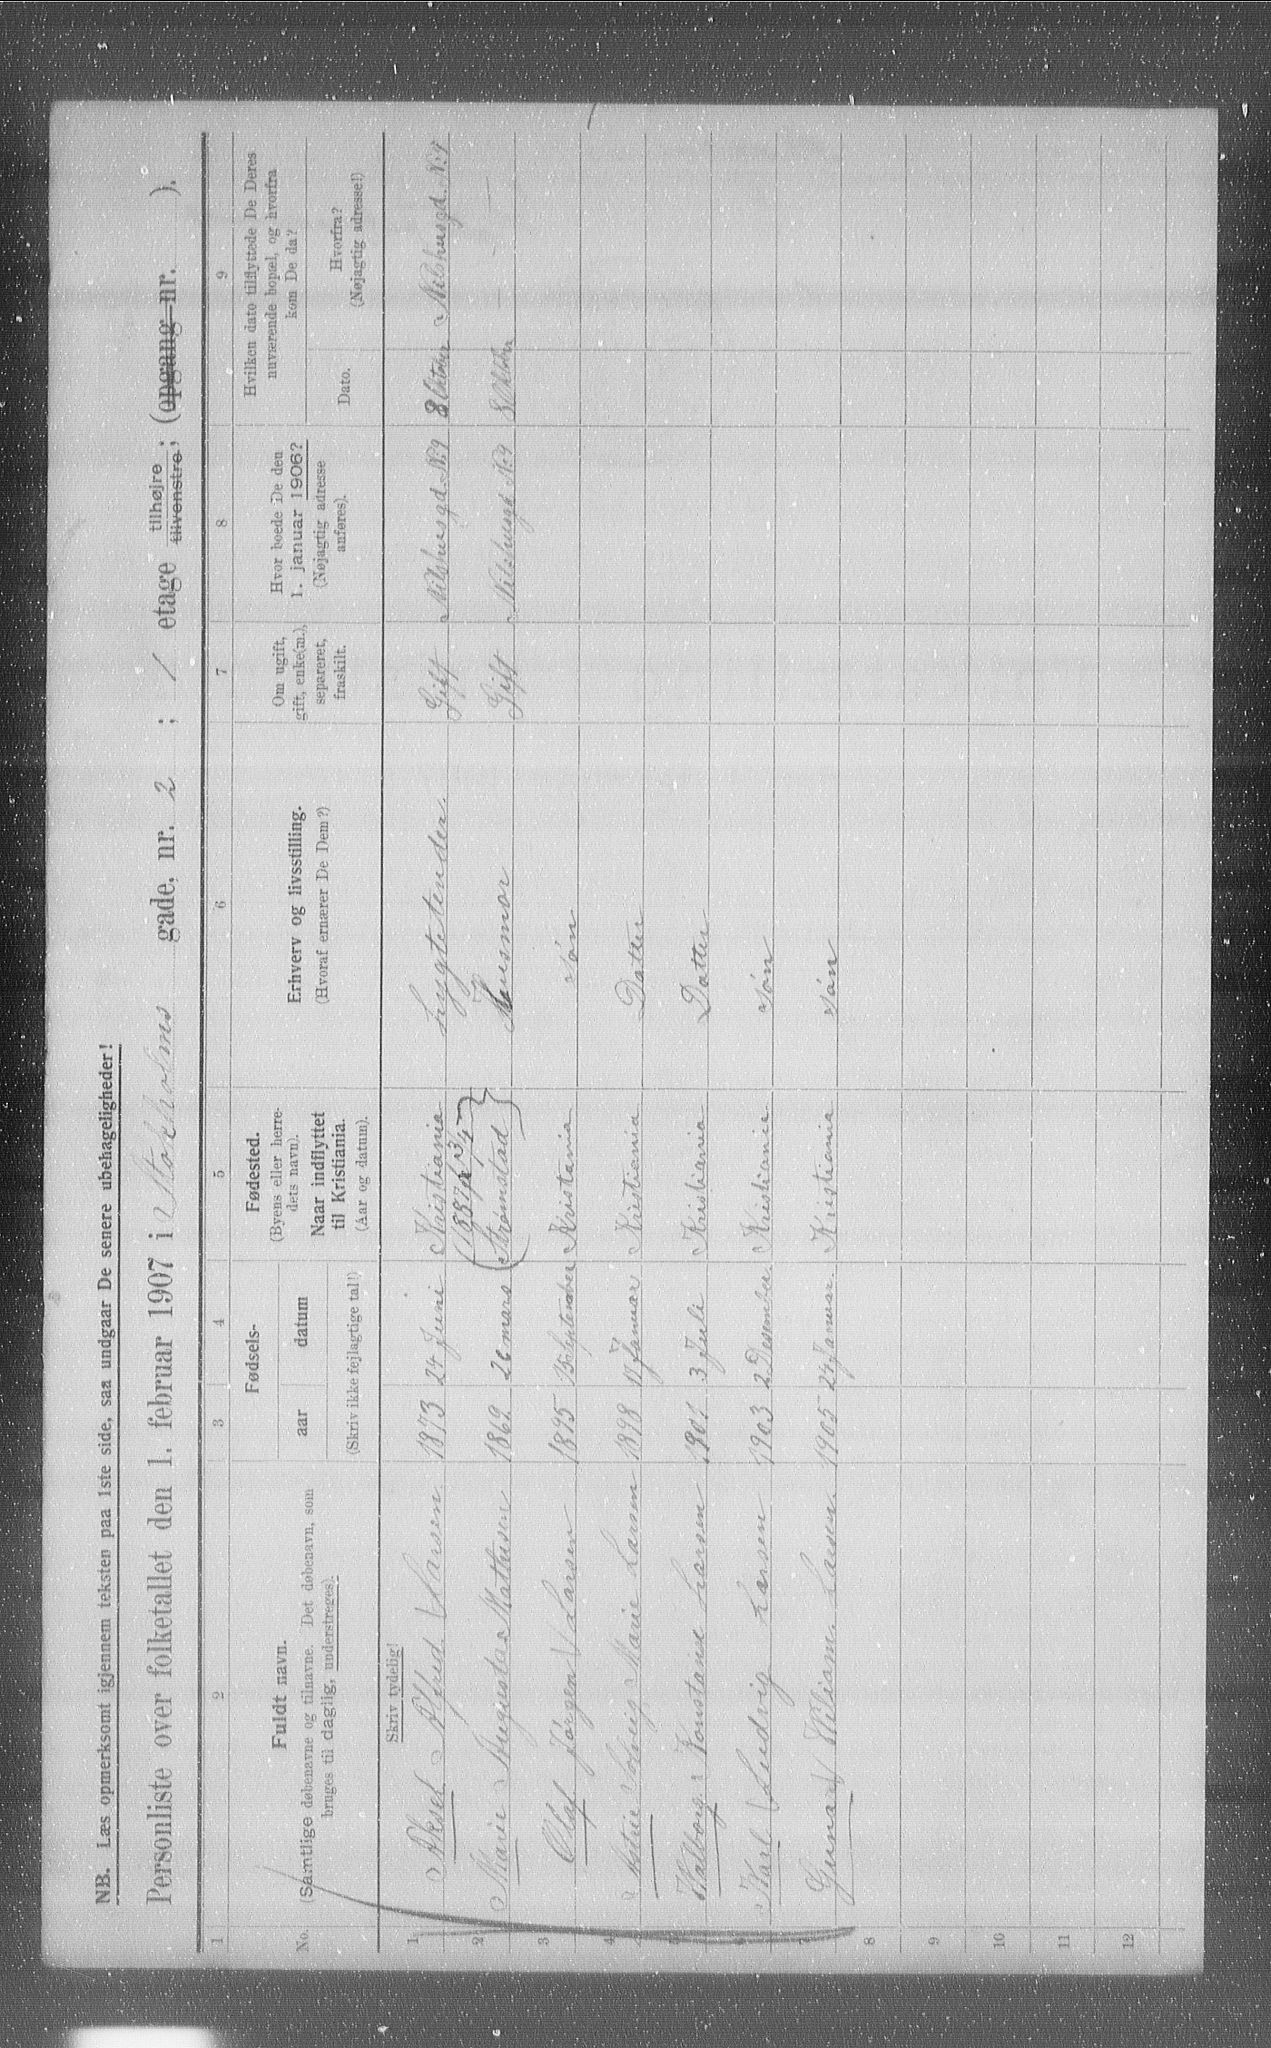 NB. Læs opmerksomt igjennem teksten paa 1ste side, saa undgaar De senere ubehageligheder!
Personliste over folketallet den 1. februar 1907 i Stokholms gade, nr. 2 ; 1 etage tilhøjre tilvenstre ; (opgang nr. ).
1 2 3 4 5 6 7 8 9
No.
Fuldt navn.
(Samtlige døbenavne og tilnavne. Det døbenavn, som
bruges til daglig, understreges).
Fødsels-
aar datum
(Skriv ikke fejlagtige tal!)
Fødested.
(Byens eller herre-
dets navn).
Naar indflyttet
til Kristiania.
(Aar og datum).
Erhverv og livsstilling.
(Hvoraf ernærer De Dem?)
Om ugift,
gift, enke(m.),
separeret,
fraskilt.
Hvor boede De den
1. januar 1906?
(Nøjagtig adresse
anføres).
Hvilken dato tilflyttede De Deres
nuværende bopæl, og hvorfra
kom De da?
Dato.
Hvorfra?
(Nøjagtig adresse!)
Skriv tydelig!
1 Aksel Alfred Larsen 1873 24 Juni Kristiania Lygtetender Gift Nilshusgd. No 9 8 Oktober Nilshusgd. No 9
2 Marie Augusta Mathisen 1869 26 mars (1887 3/4 Strømstad) Husmor Gift Nilshusgd No 9 8 Oktober — —
3 Olaf Jørgen Larsen 1895 15 September Kristania søn
4 Astrie Solveig Marie Larsen 1898 11 Januar Kristiania Datter
5 Valborg Konstanse Larsen 1901 3 Juli Kristiania Datter
6 Karl Ludvig Larsen 1903 2 Desember Kristiania søn
7 Gunnar Wiliam Larsen 1905 24 Januar Kristiania søn
8
9
10
11
12